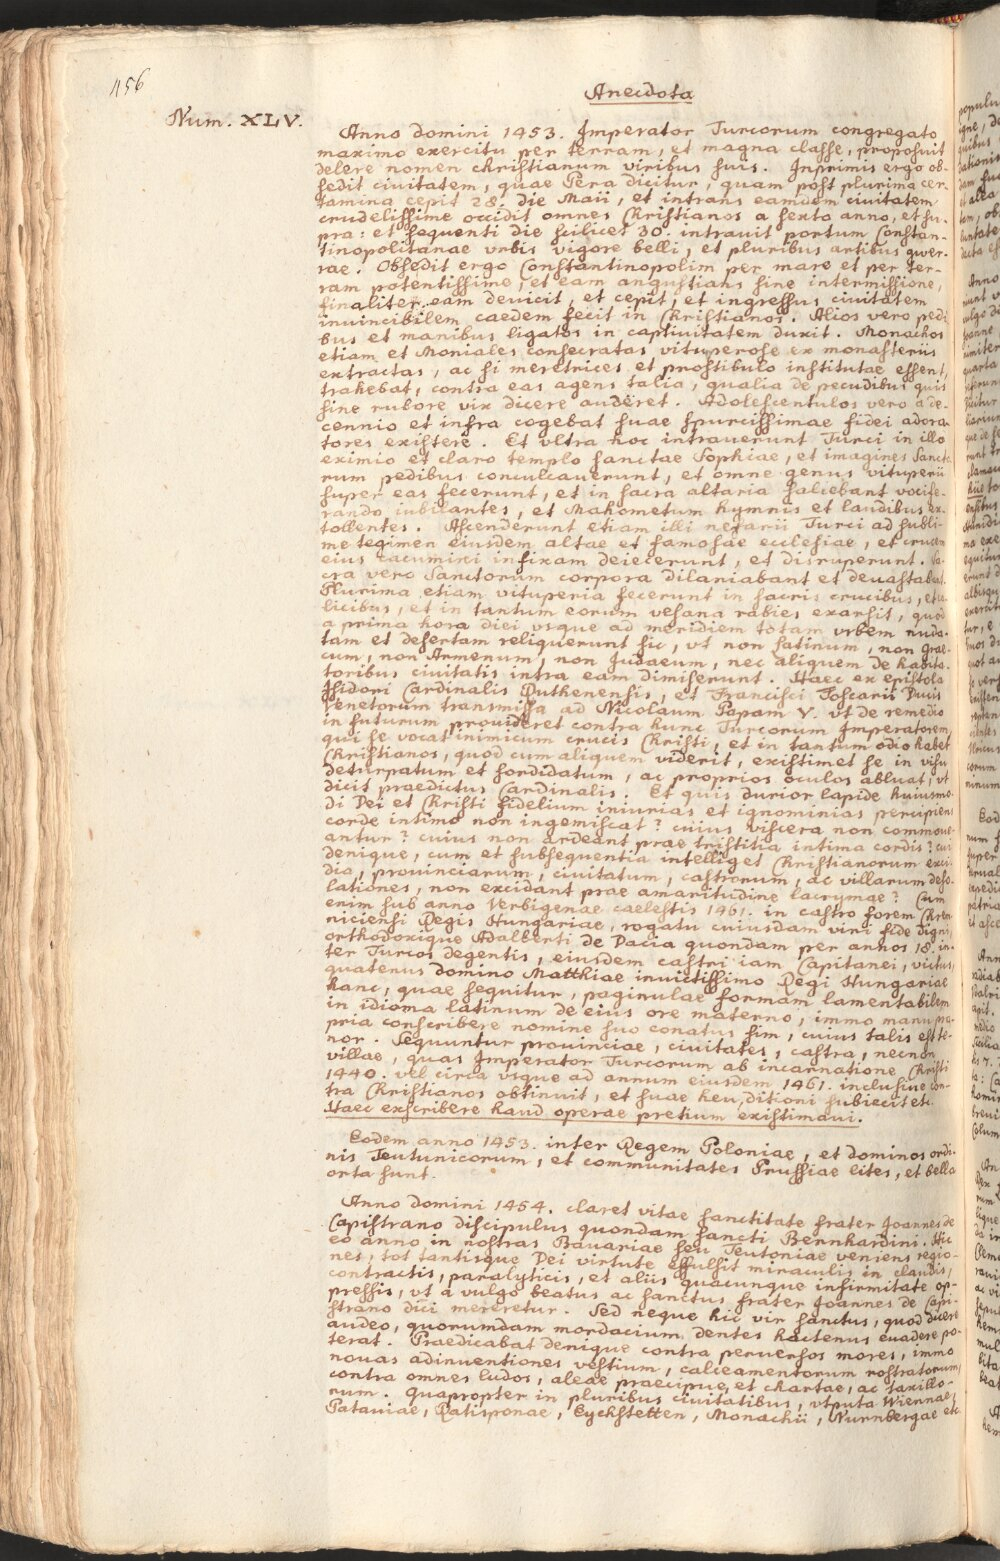 456
Anecdota
Num. XLV.
Anno domini 1453. Imperator Turcorum congregato
maximo exercitu per terram, et magna classe, proposuit
delere nomen christianum viribus suis. Inprimis ergo ob-
sedit ciuitatem, quae Pera dicitur, quam post plurima cer-
tamina cepit 28. die Maii, et intrans eamdem ciuitatem,
crudelissime occidit omnes Christianos a sexto anno, et su-
pra: et sequenti die scilicet 30. intrauit portum Constan-
tinopolitanae vrbis vigore belli, et pluribus artibus gwer-
rae. Obsedit ergo Constantinopolim per mare et per ter-
ram potentissime, et eam angustians sine intermissione,
finaliter eam deuicit, et cepit, et ingressus ciuitatem
inuincibilem caedem fecit in Christianos. Alios vero pedi
bus et manibus ligatos in captiuitatem duxit. Monachos
etiam et Moniales consecratas vituperose ex monasteriis
extractas, ac si meretrices et prostibulo institutae essent,
trahebat, contra eas agens talia, qualia de pecudibus quis
sine rubore vix dicere auderet. Adolescentulos vero a de-
cennio et infra cogebat suae spurcissimae fidei adora-
tores existere. Et vltra hoc intrauerunt Turci in illo
eximio et claro templo sanctae Sophiae, et imagines Sancto
rum pedibus conculcauerunt, et omne genus vituperii
super eas fecerunt, et in sacra altaria saliebant vocife-
rando iubilantes, et Mahometum hymnis et laudibus ex-
tollentes. Ascenderunt etiam illi nefarii Turci ad subli-
me tegimen eiusdem altae et famosae ecclesiae, et crucem
eius cacumini infixam deiecerunt, et disruperunt. Sa-
cra vero Sanctorum corpora dilaniabant et deuastabant.
Plurima etiam vituperia fecerunt in sacris crucibus, et ca-
licibus, et in tantum eorum vesana rabies exarsit, quod
a prima hora diei vsque ad meridiem totam vrbem nuda-
tam et desertam reliquerunt sic, vt non Latinum, non Grae-
cum, non Armenum, non Judaeum, nec aliquem de habita-
toribus ciuitatis intra eam dimiserunt. Haec ex epistola
Isidori Cardinalis Ruthenensis, et Francisci Foscarii Ducis
Venetorum transmissa ad Nicolaum Papam V. vt de remedio
in futurum prouideret contra hunc Turcorum Imperatorem,
qui se vocat inimicum crucis Christi, et in tantum odio habet
Christianos, quod cum aliquem viderit, existimet se in visu
deturpatum et sordidatum, ac proprios oculos abluat, vt
dicit praedictus Cardinalis. Et quis durior lapide huiusmo-
di Dei et Christi fidelium iniurias et ignominias percipiens
corde intimo non ingemiscat? cuius viscera non commoue-
antur? cuius non ardeant prae tristitia intima cordis? cui
denique, cum et subsequentia intelliget Christianorum exci-
dia, prouinciarum, ciuitatum, castrorum, ac villarum deso-
lationes, non excidant prae amaritudine lacrymae? Cum
enim sub anno Verbigenae caelestis 1461. in castro forem Chrem
niciensi Regis Hungariae, rogatu cuiusdam viri fide digni,
orthodoxique Adalberti de Dacia quondam per annos 18. in-
ter Turcos degentis, eiusdem castri iam Capitanei, victus,
quatenus domino Matthiae inuictissimo Regi Hungariae
hanc, quae sequitur, paginulae formam lamentabilem
in idioma latinum de eius ore materno, immo manu pro-
pria conscribere nomine suo conatus sim, cuius talis est te-
nor. Sequuntur prouinciae, ciuitates, castra, necnon
villae, quas Imperator Turcorum ab incarnatione Christi
1440. vel circa vsque ad annum eiusdem 1461. inclusiue con-
tra Christianos obtinuit, et suae heu, ditioni subiecit etc.
Haec exscribere haud operae pretium existimaui.
Eodem anno 1453. inter Regem Poloniae, et dominos ordi-
nis Teutunicorum, et communitates Prussiae lites, et bella
orta sunt.
Anno domini 1454. claret vitae sanctitate frater Joannes de
Capistrano discipulus quondam sancti Bernhardini. Hic
eo anno in nostras Bauariae seu Teutoniae veniens regio-
nes, tot tantisque Dei virtute effulsit miraculis in claudis,
contractis, paralyticis, et aliis quacunque infirmitate op-
pressis, vt a vulgo beatus ac sanctus frater Joannes de Capi-
strano dici mereretur. Sed neque hic vir sanctus, quod dicere
audeo, quorumdam mordacium dentes hactenus euadere po-
terat. Praedicabat denique contra peruersos mores, immo
nouas adinuentiones vestium, calceamentorum rostratorum,
contra omnes ludos, aleae praecipue, et chartae, ac taxillo-
rum. Quapropter in pluribus ciuitatibus, vtputa Wiennae,
Patauiae, Ratisponae, Eyckstetten, Monachii, Nurnbergae etc.